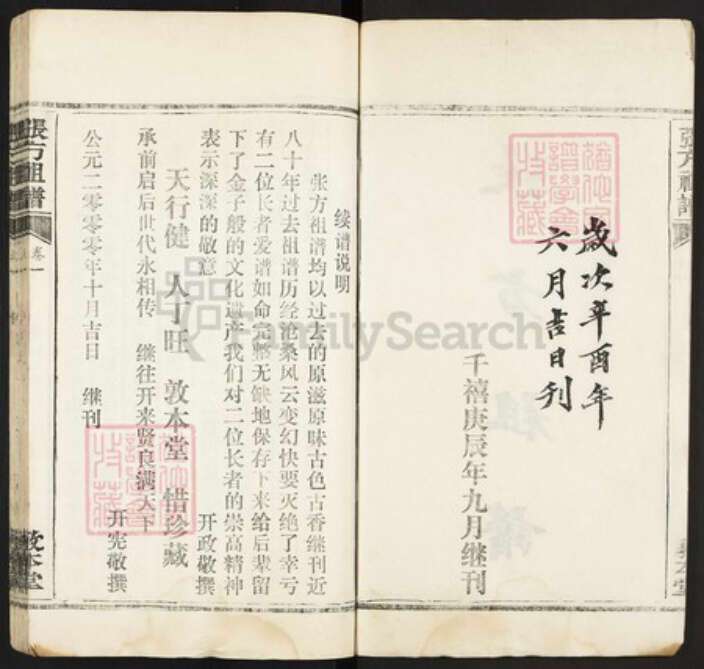 歲次辛酉年
六月吉日刊
千禧庚辰年九月继刊
张方祖谱
敦本堂
续谱说明
张方祖谱均以过去的原滋原味古色古香继刊近
八十年过去祖谱历经沧桑风云变幻快要灭绝了幸亏
有二位长者爱谱如命完整无缺地保存下来给后辈留
下了金子般的文化遗产我们对二位长者的崇高精神
表示深深的敬意
开政敬撰
天行健 人丁旺 敦本堂 惜珍藏
承前启后世代永相传 继往开来贤良满天下
开宪敬撰
公元二零零零年十月吉日 继刊
張方祖譜
卷一
敦本堂
FamilySearch